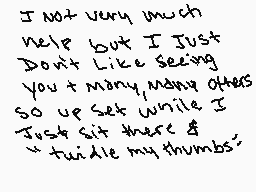 I not very much
help but I Just
Don't Like seeing
you + many, many others
so up set while I
Just sit there &
"twidle my thumbs"